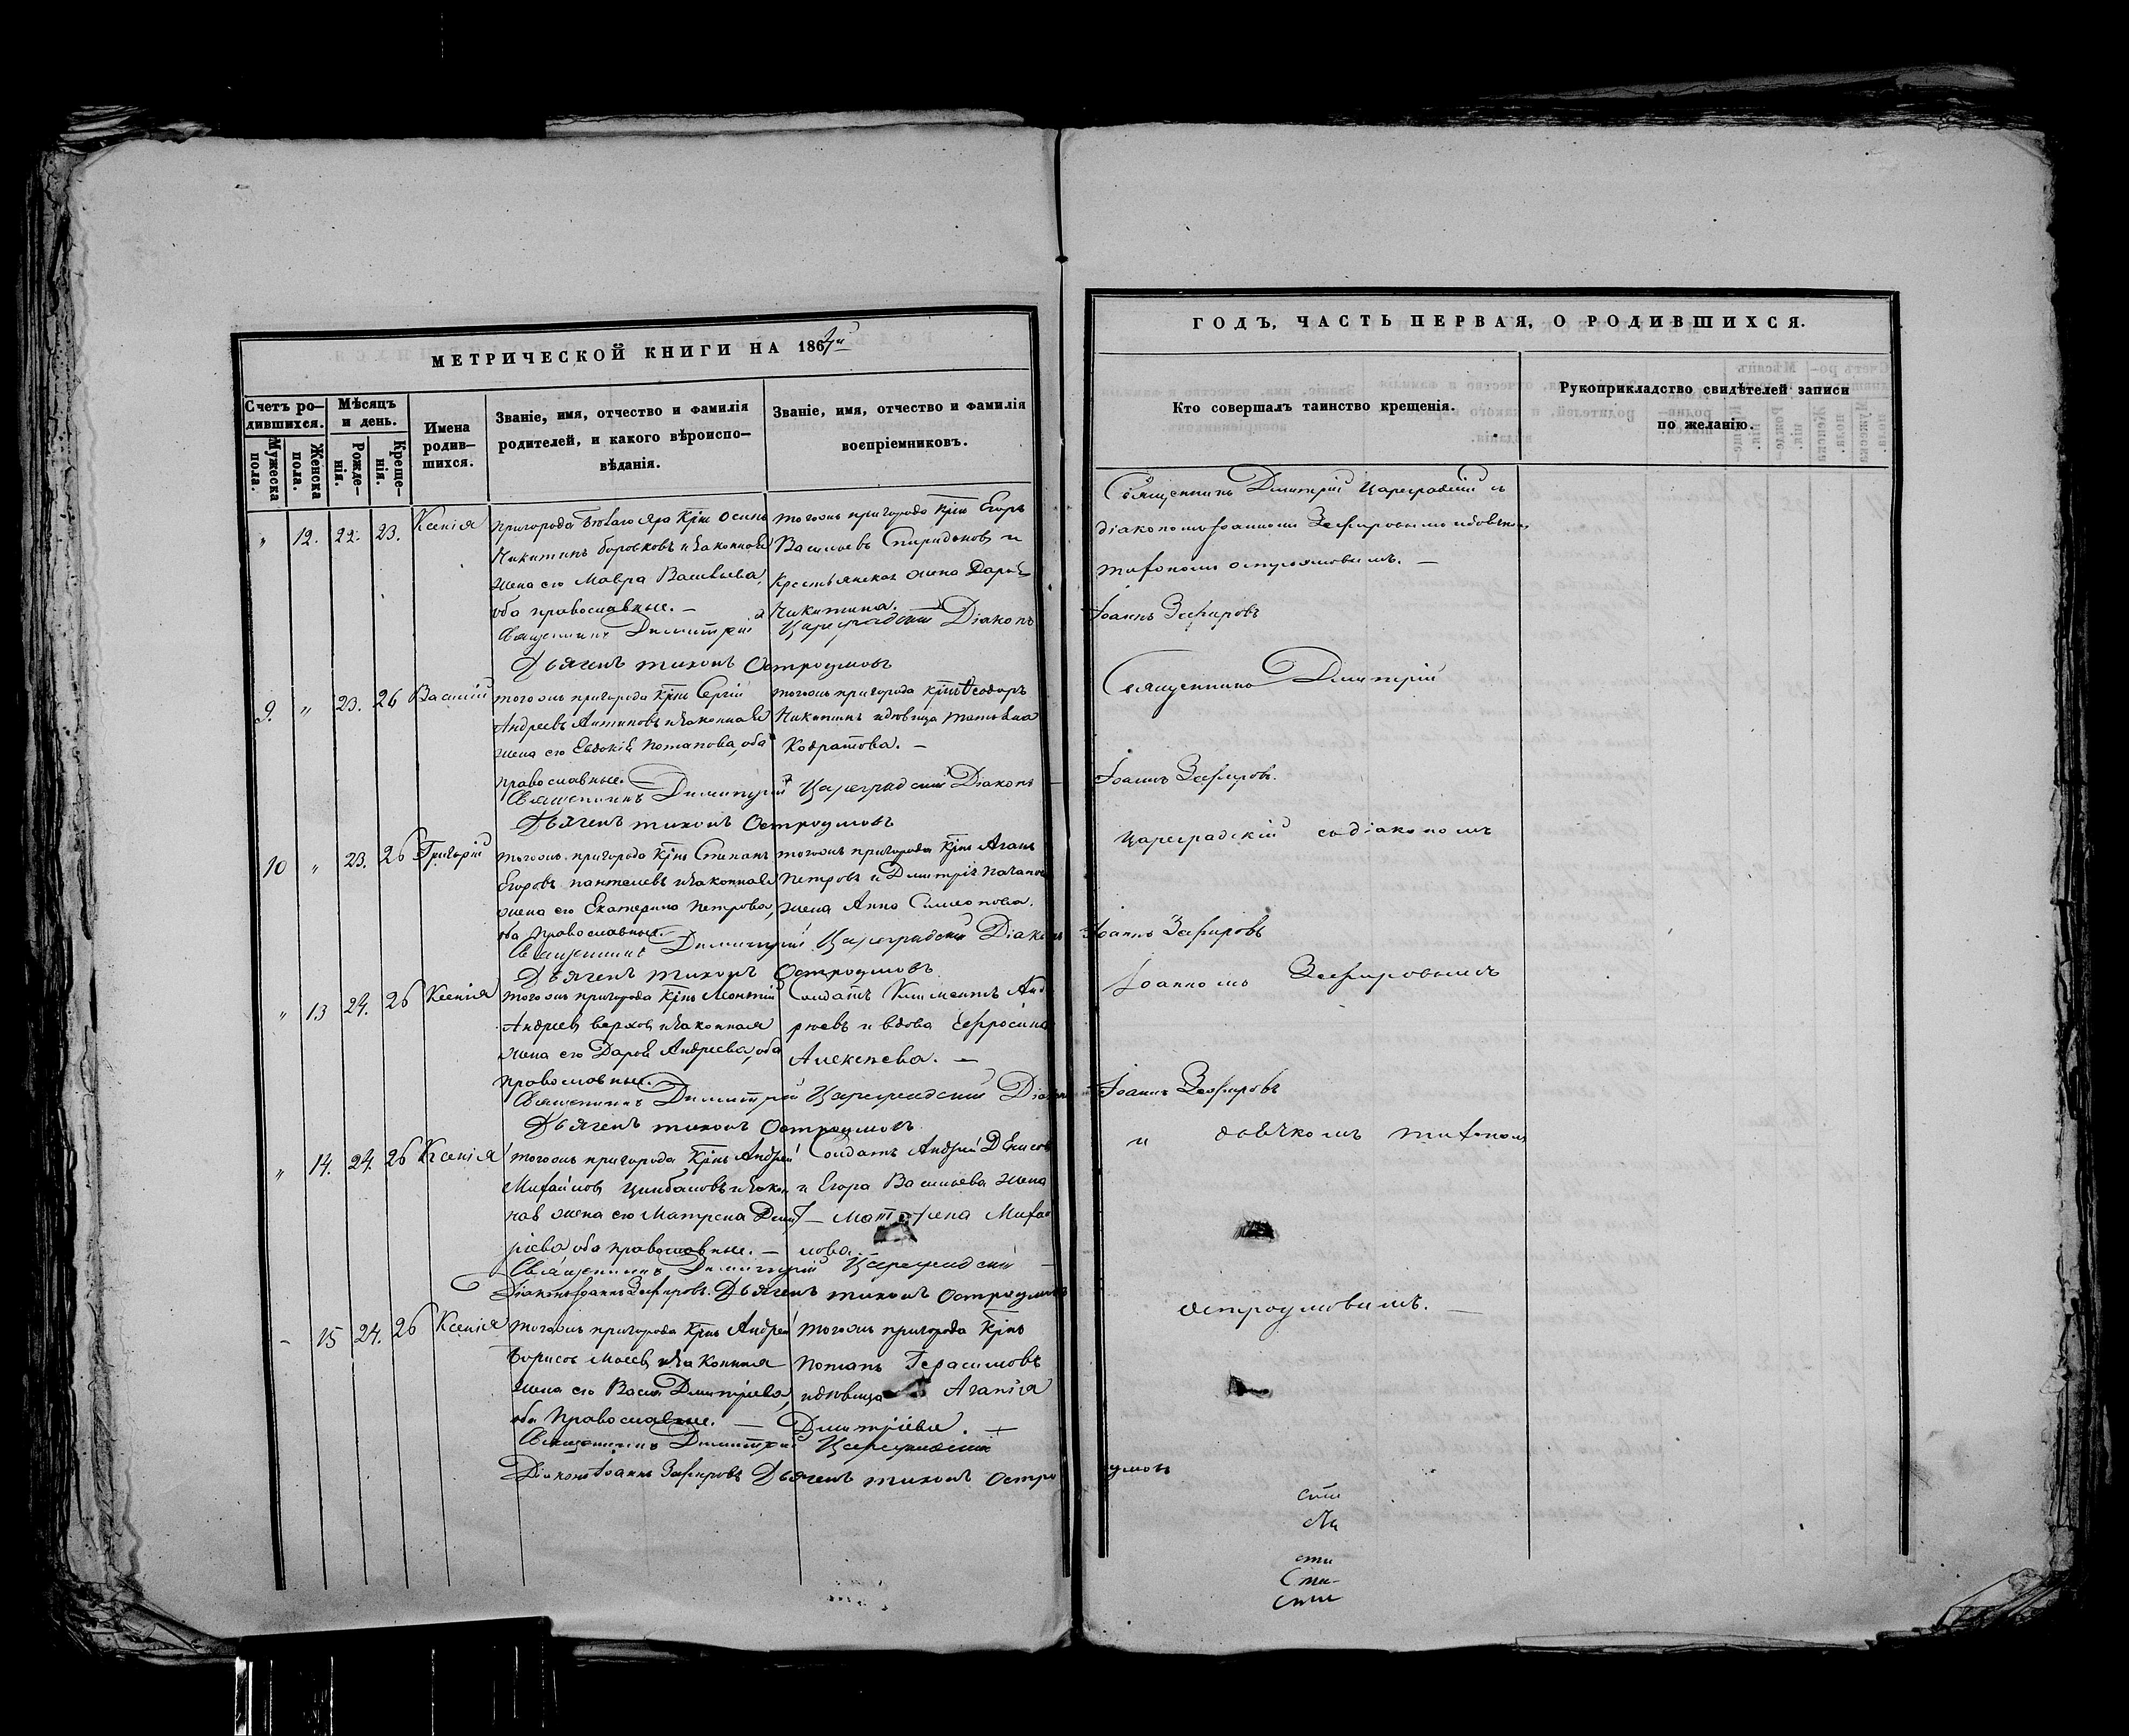 МЕТРИЧЕСКОЙ КНИГИ НА 186
ГОДЪ, ЧАСТЬ ПЕРВАЯ, О РОДИВШИХСЯ.
Счетъ ро-
дившихся.
Мужеска
пола.
Женска
пола.
Мѣсяцъ
и день.
Рожде-
нія.
Креще-
нія.
Имена
родив-
шихся.
Званіе, имя, отчество и фамилія
родителей, и какого вѣроиспо-
вѣданія.
Званіе, имя, отчество и фамилія
воспріемниковъ.
Кто совершалъ таинство крещенія.
Рукоприкладство свидѣтелей записи
по желанію.
" 12. 22. 23. Ксенія
пригорода Бѣлаго яра Крнъ Осипъ
Никитинъ боровковъ и законная
жена его Мавра Васильева,
оба православные. —
тогожъ пригорода Крнъ Егоръ
Васильевъ Спиридоновъ и
Крестьянская жена Дарья
Никитина. —
Священникъ Димитрій Цареградскій съ
діакономъ Іоанномъ Зефировымъ и дьячкомъ
тихономъ остроумовымъ. —
Священникъ Димитрій Цареградскій Діаконъ Іоаннъ Зефировъ
Дьячекъ тихонъ Остроумовъ
9. " 23. 26 Василій
тогожъ пригорода Крнъ Сергій
Андреевъ Антиповъ и законная
жена его Евдокія Потапова, оба
православные. —
тогожъ пригорода крнъ Ѳеодоръ
Никитинъ и девица татьяна
Кодратова. —
Священникъ Димитрій
Священникъ Димитрій Цареградскій Діаконъ — Іоаннъ Зефировъ.
Дьячекъ тихонъ Остроумовъ
10 " 23. 26 Григорій
тогожъ пригорода Крнъ Степанъ
Егоровъ пантелевъ и законная
жена его Екатерина петрова,
оба православные.
тогожъ пригорода Крнъ Агапъ
петровъ и Дмитрія
жена Анна Симеонова.
Цареградскій съ діакономъ
Священникъ Димитрій Цареградскій Діаконъ Іоаннъ Зефировъ
Дьячекъ тихонъ Остроумовъ
" 13 24. 26 Ксенія
тогожъ пригорода Крнъ Леонтій
Андреевъ верхов и законная
жена его Дарья Андреева, оба
православные.
Солдатъ Климентъ Анд
реевъ и вдова Ефросинія
Алексеева. —
Іоанномъ Зефировымъ
Священникъ Димитрій Цареградскій Діаконъ Іоаннъ Зефировъ
Дьячекъ тихонъ Остроумовъ
" 14. 24. 26 Ксенія
тогожъ пригорода Крнъ Андрей
Михайловъ Цимбаловъ и закон
ная жена его Матрена Дмит
ріева, оба православные. —
Солдатъ Андрей Денисовъ
и Егора Васильева жена
— Матрена Михай
лова.
и дьячкомъ тихономъ
Священникъ Димитрій Цареградскій
Діаконъ Іоаннъ Зефировъ. Дьячекъ тихонъ Остроумовъ
- 15 24. 26 Ксенія
тогожъ пригорода Крнъ Андрей
Борисов Мосеев и законная
жена его Васса Дмитріева,
оба православные. —
тогожъ пригорода Крнъ
потапъ Герасимовъ
и девица Агапія
Дмитріева. —
остроумовымъ. —
Священникъ Димитрій Цареградскій
Діаконъ Іоаннъ Зефировъ Дьячекъ тихонъ Остроумовъ